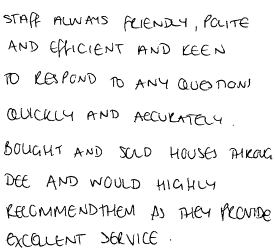 STAFF ALWAYS FRIENDLY, POLITE
AND EFFICIENT AND KEEN
TO RESPOND TO ANY QUESTIONS
QUICKLY AND ACCURATELY.
BOUGHT AND SOLD HOUSES THROUG
DEE AND WOULD HIGHLY
RECOMMEND THEM AS THEY PROVIDE
EXCELLENT SERVICE.